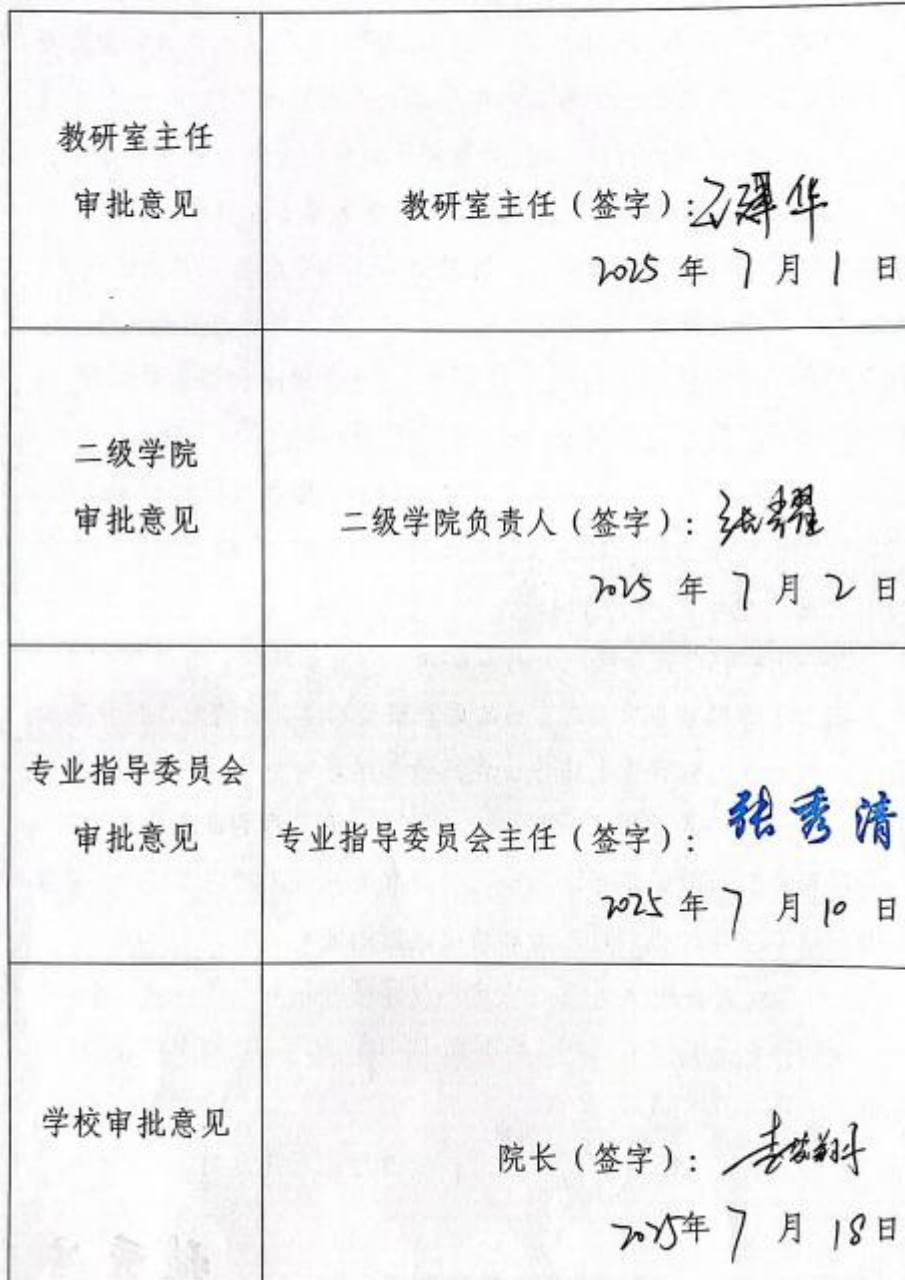 教研室主任
审批意见
教研室主任（签字）：
2025 年 7 月 1 日
二级学院
审批意见
二级学院负责人（签字）：张耀
2025 年 7 月 2 日
专业指导委员会
审批意见
专业指导委员会主任（签字）：张秀清
2025 年 7 月 10 日
学校审批意见
院长（签字）：
2025年 7 月 18日